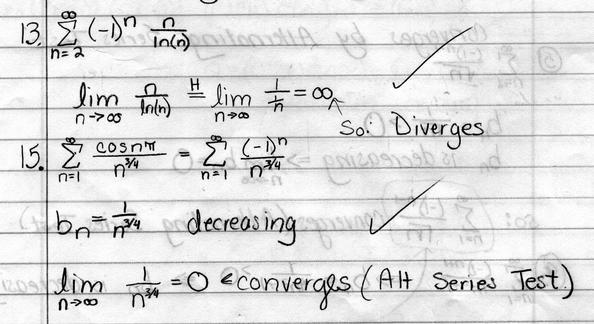 13. ∞ Σ n=2 (-1)^n n/ln(n) ✓
lim n→∞ n/ln(n) =^H lim n→∞ 1/(1/n) = ∞ ↖
So: Diverges
15. ∞ Σ n=1 cosnπ/n^(3/4) = ∞ Σ n=1 (-1)^n/n^(3/4)
b_n = 1/n^(3/4) decreasing ✓
lim n→∞ 1/n^(3/4) = 0 ← converges (Alt Series Test)